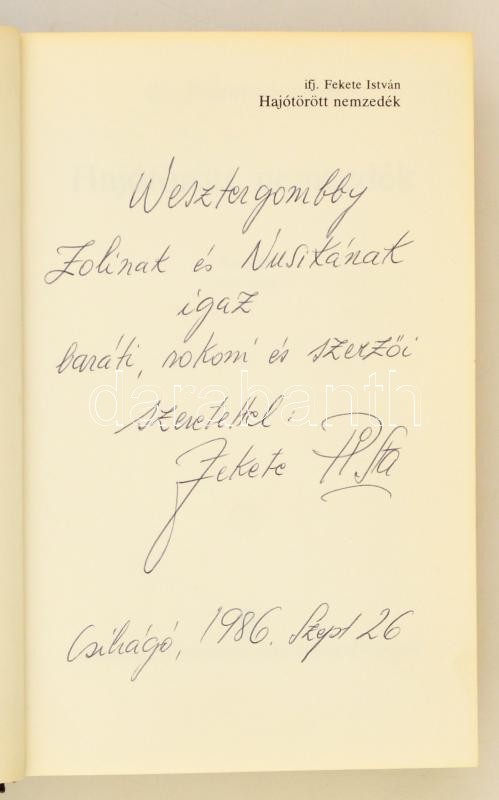 ifj. Fekete István
Hajótörött nemzedék
Wesztergombby
Zolinak és Nusikának
igaz
baráti, rokoni és szerzői
darabanth
szeretettel:
Fekete Pista
Csikágó, 1986. Szept 26